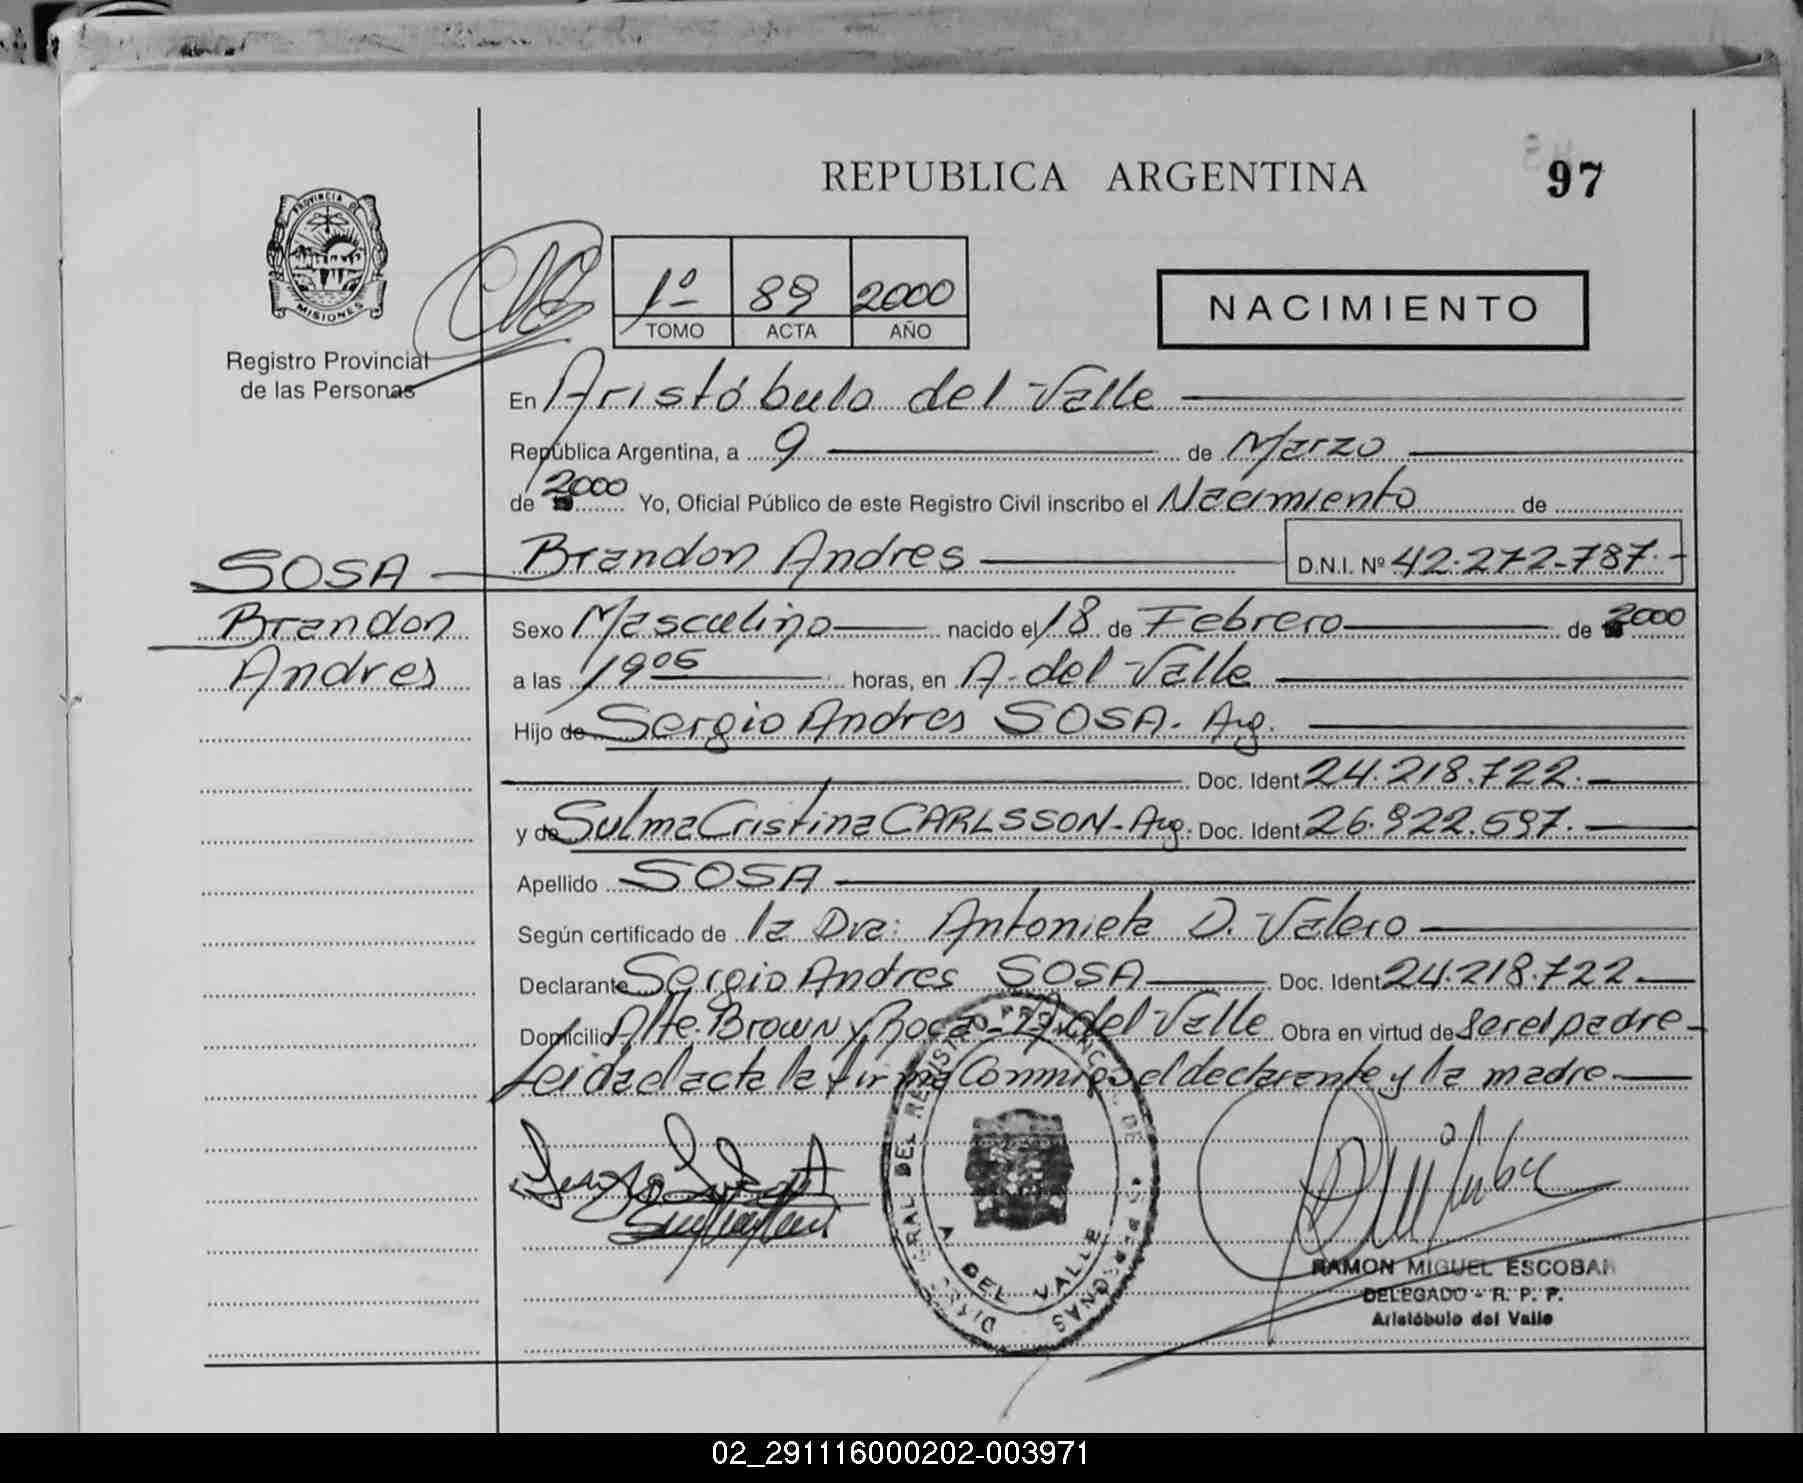 REPUBLICA ARGENTINA
97
PROVINCIA DE
MISIONES
Registro Provincial
de las Personas
1º 89 2000
TOMO ACTA AÑO
NACIMIENTO
En Aristóbulo del Valle
República Argentina, a 9 de Marzo
de 2000 Yo, Oficial Público de este Registro Civil inscribo el Nacimiento de
Brandon Andres D.N.I. Nº 42.272.787.-
SOSA
Brandon
Andres
Sexo Masculino nacido el 18 de Febrero de 2000
a las 19 05 horas, en A. del Valle
Hijo de Sergio Andres SOSA. Arg.
Doc. Ident 24.218.722.
y de Sulma Cristina CARLSSON-Arg. Doc. Ident 26.922.597.
Apellido SOSA
Según certificado de la Dra: Antonieta D. Valero
Declarante Sergio Andres SOSA Doc. Ident 24.218.722.
Domicilio Alte. Brown y Roca - A. del Valle Obra en virtud de ser el padre-
Leida el acta la firma Conmigo el declarante y la madre
DEL REGISTRO PROVINCIAL DE
A DEL VALLE
RAMON MIGUEL ESCOBAR
DELEGADO - R. P. P.
Aristóbulo del Valle
02_291116000202-003971